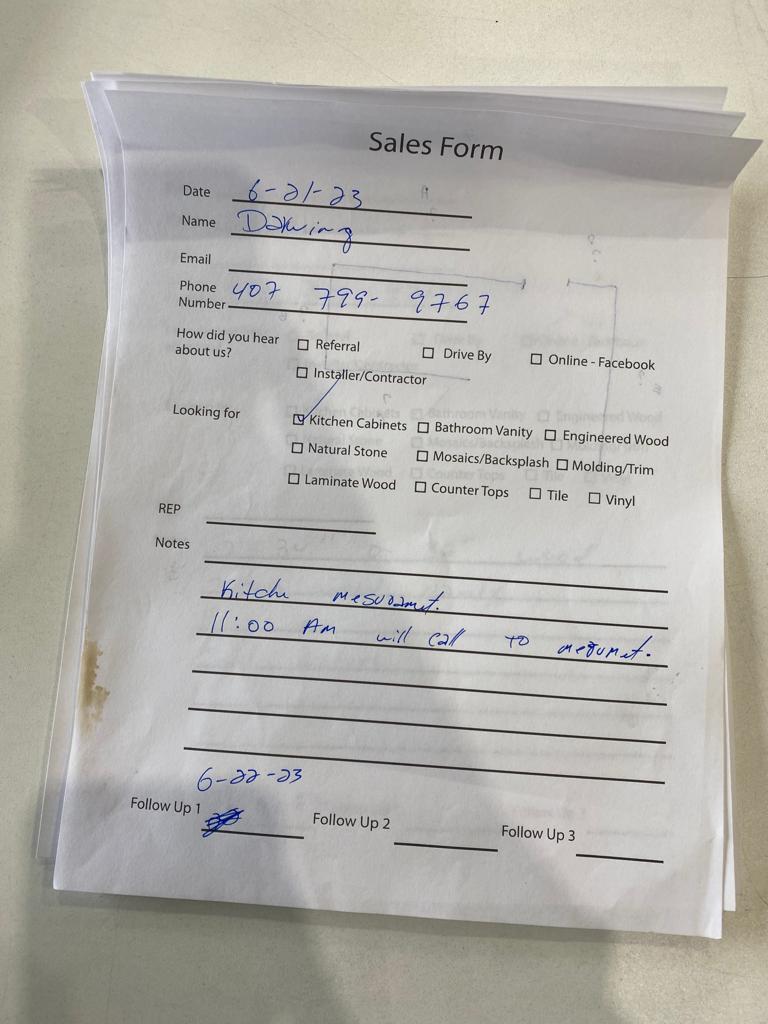 Sales Form
Date 6-21-23
Name Darwing
Email
Phone Number 407 799- 9767
How did you hear about us?
☐ Referral ☐ Drive By ☐ Online - Facebook
☐ Installer/Contractor
Looking for
☑ Kitchen Cabinets ☐ Bathroom Vanity ☐ Engineered Wood
☐ Natural Stone ☐ Mosaics/Backsplash ☐ Molding/Trim
☐ Laminate Wood ☐ Counter Tops ☐ Tile ☐ Vinyl
REP
Notes
Kitche mesuramet.
11:00 AM will call to
6-22-23
Follow Up 1 Follow Up 2 Follow Up 3